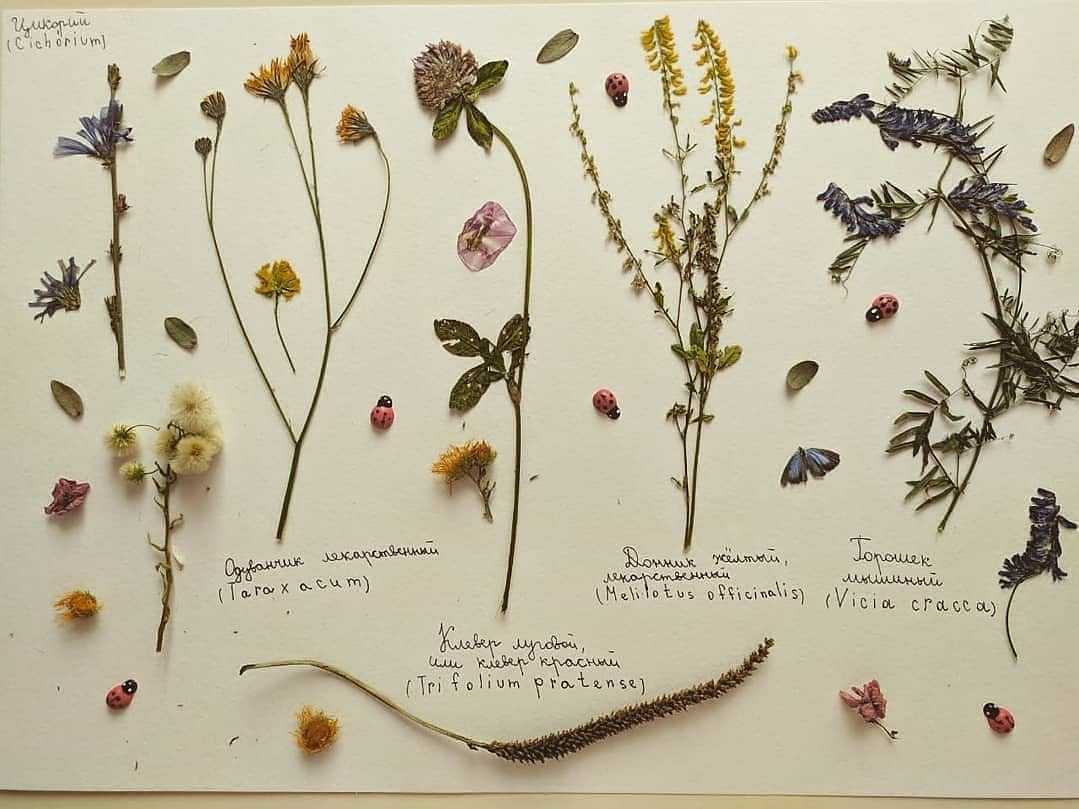 Цикорий
(Cichorium)
Одуванчик лекарственный
(Taraxacum)
Клевер луговой,
или клевер красный
(Trifolium pratense)
Донник жёлтый,
лекарственный
(Melilotus officinalis)
Горошек
мышиный
(Vicia cracca)